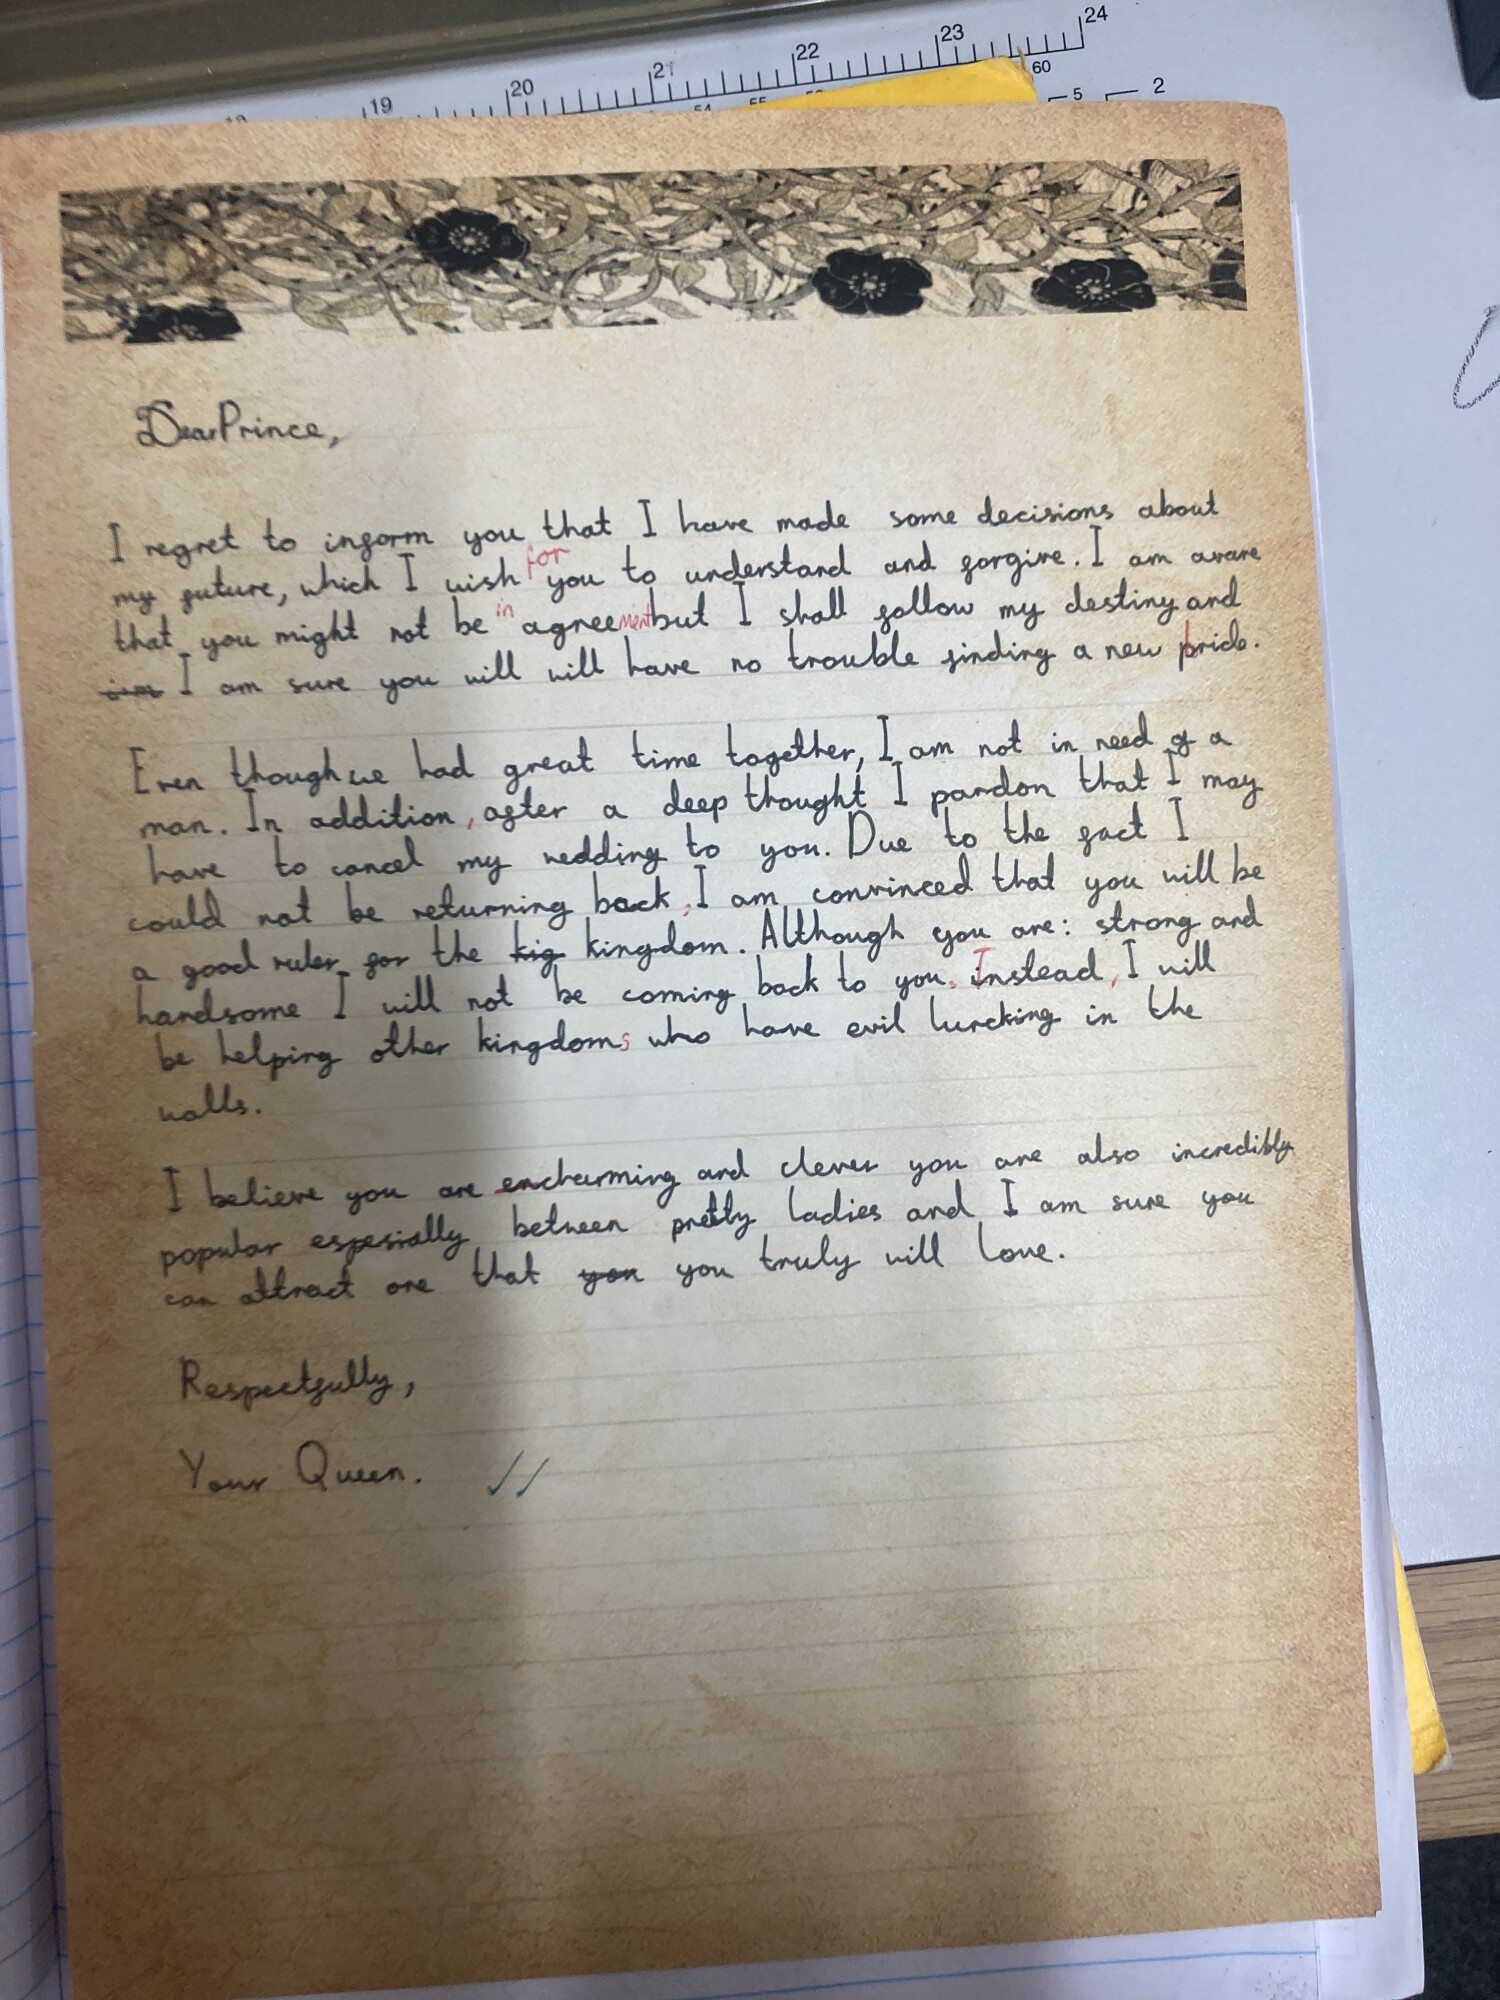 19 20 21 22 23 24
54 55 60
5 2
Dear Prince,
I regret to inform you that I have made some decisions about
for
my future, which I wish you to understand and forgive. I am aware
that you might not be in agreement but I shall follow my destiny and
I am sure you will will have no trouble finding a new bride.
Even though we had great time together, I am not in need of a
man. In addition, after a deep thought I pardon that I may
have to cancel my wedding to you. Due to the fact I
could not be returning back, I am convinced that you will be
a good ruler for the kig kingdom. Although you are: strong and
handsome I will not be coming back to you. Instead, I will
be helping other kingdoms who have evil lurcking in the
walls.
I believe you are encharming and clever you are also incredibly
popular espesially between pretty ladies and I am sure you
can attract one that you you truly will love.
Respectfully,
Your Queen.